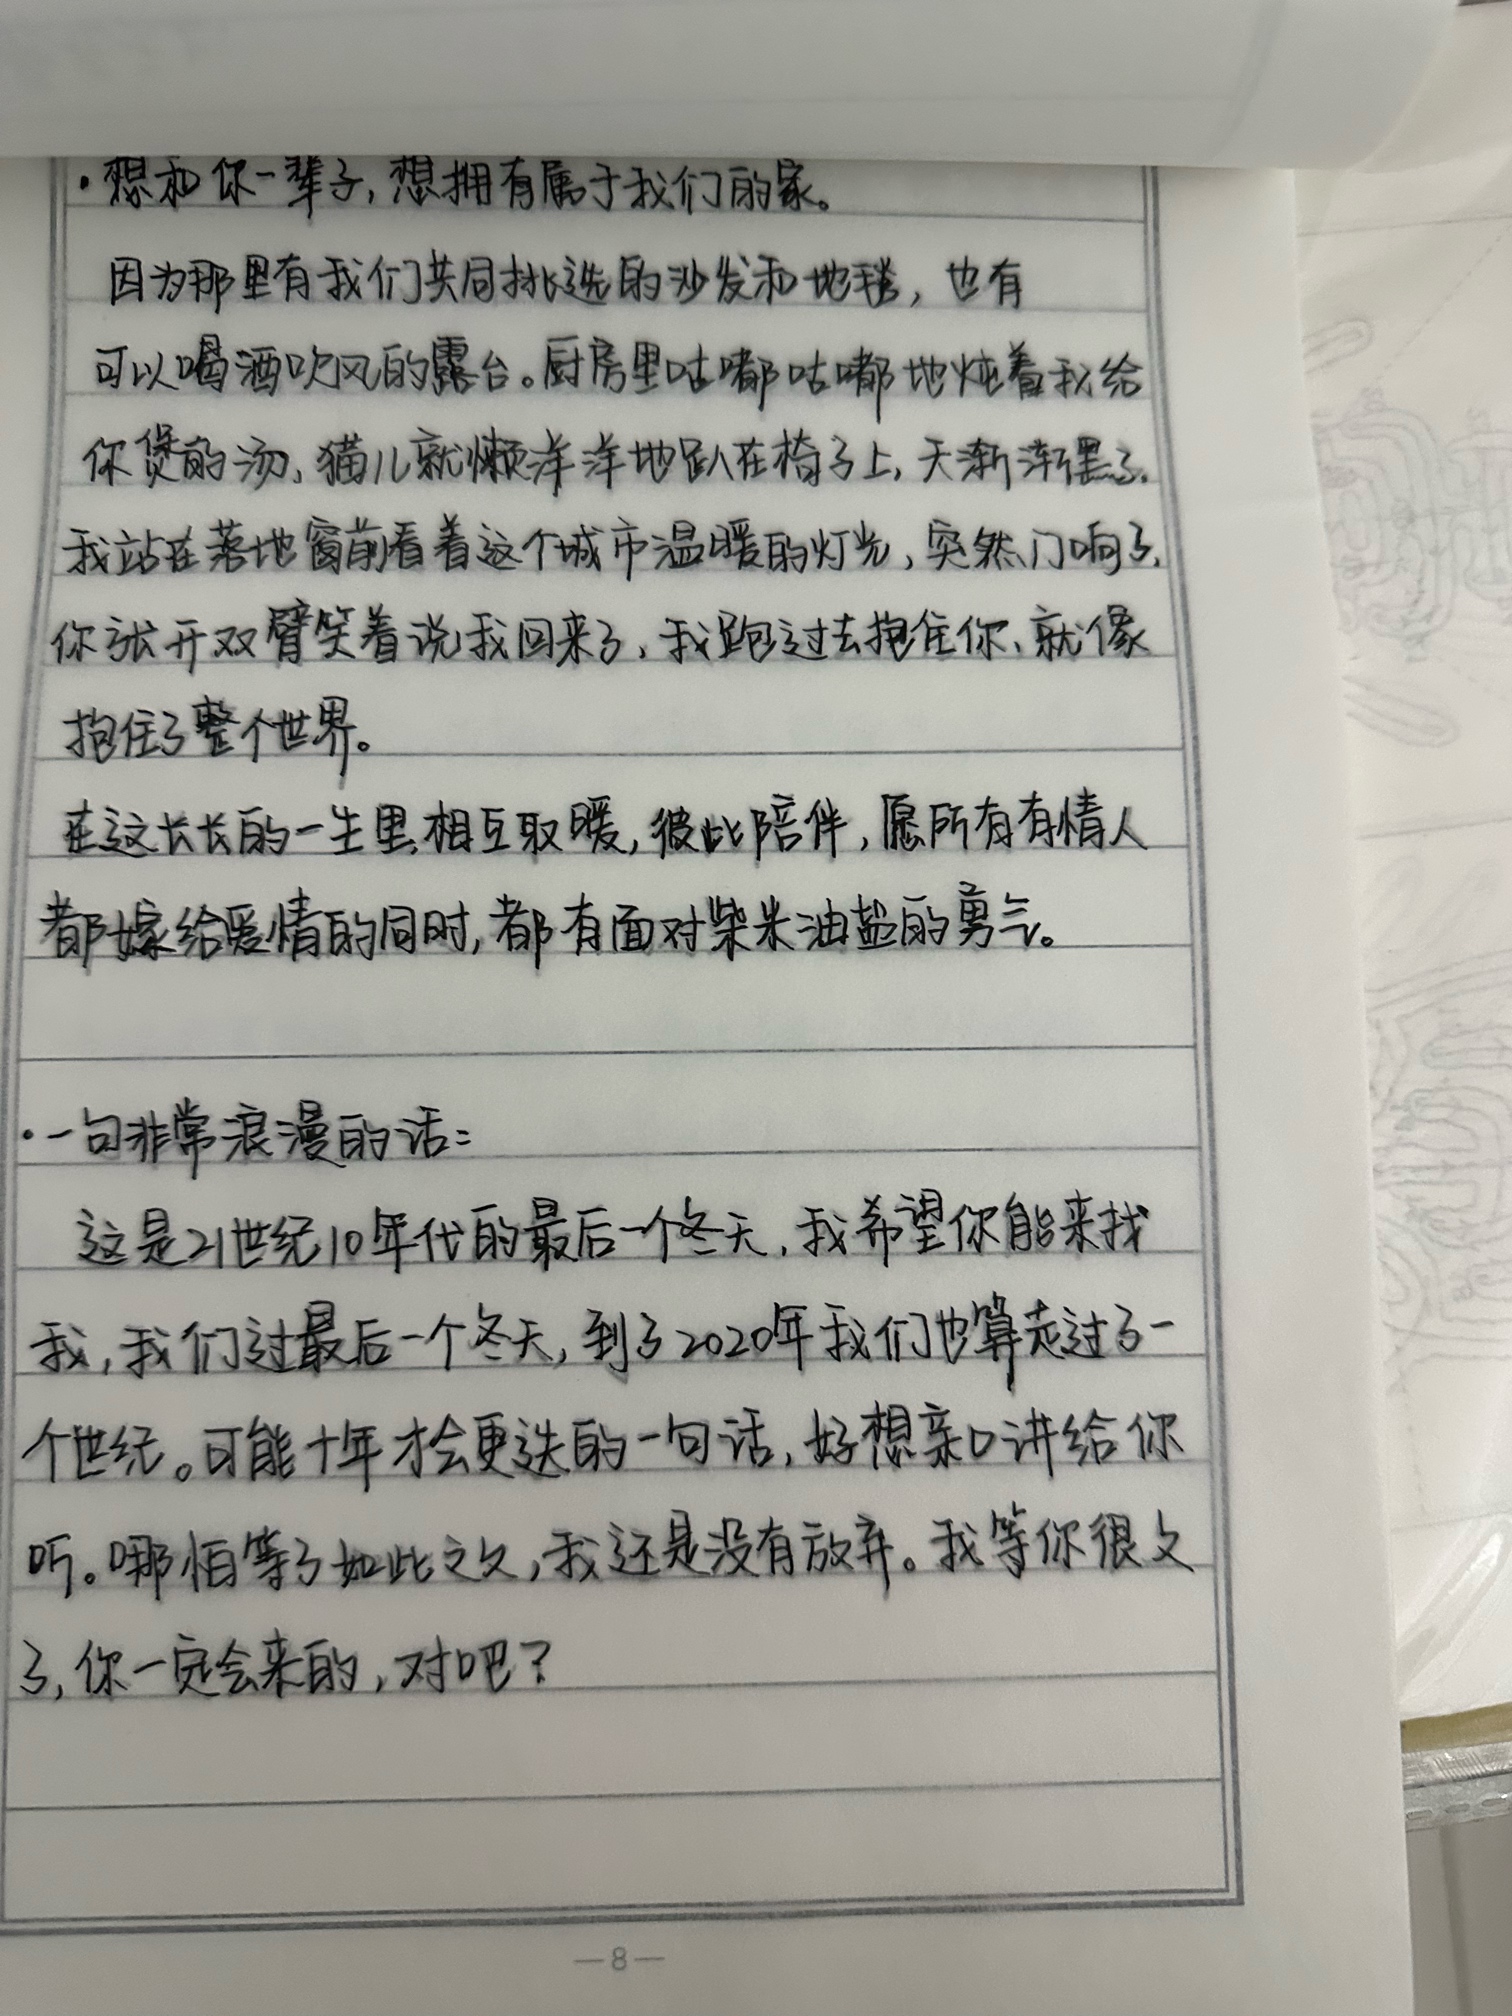 ·想和你一辈子,想拥有属于我们的家。
因为那里有我们共同挑选的沙发和地毯,也有
可以喝酒吹风的露台。厨房里咕嘟咕嘟地炖着我给
你煲的汤,猫儿就懒洋洋地趴在椅子上,天渐渐黑了.
我站在落地窗前看着这个城市温暖的灯光,突然门响了.
你张开双臂笑着说我回来了,我跑过去抱住你、就像
抱住了整个世界。
在这长长的一生里,相互取暖,彼此陪伴,愿所有有情人
都嫁给爱情的同时,都有面对柴米油盐的勇气。
·一句非常浪漫的话:
这是21世纪10年代的最后一个冬天,我希望你能来找
我,我们过最后一个冬天,到了2020年我们也算走过了一
个世纪。可能十年才会更迭的一句话,好想亲口讲给你
听。哪怕等了如此之久,我还是没有放弃。我等你很久
了,你一定会来的,对吧?
—8—